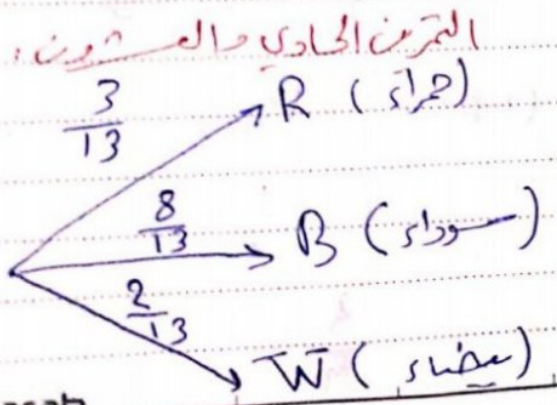 التمرين الحادي والعشرون:
3/13 R (حمراء)
8/13 B (سوداء)
2/13 W (بيضاء)